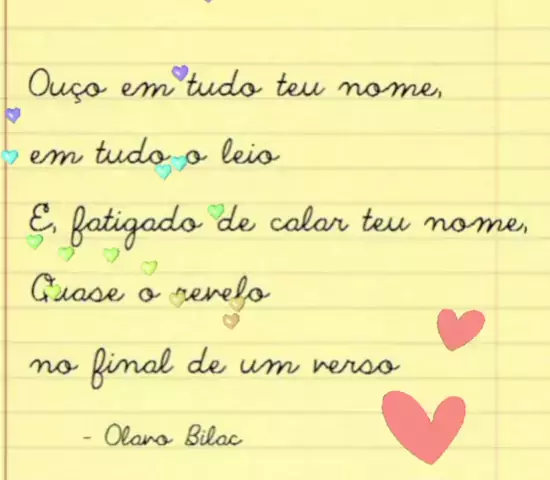 Ouço em tudo teu nome,
em tudo o leio
E, fatigado de calar teu nome,
Quase o revelo
no final de um verso
- Olavo Bilac